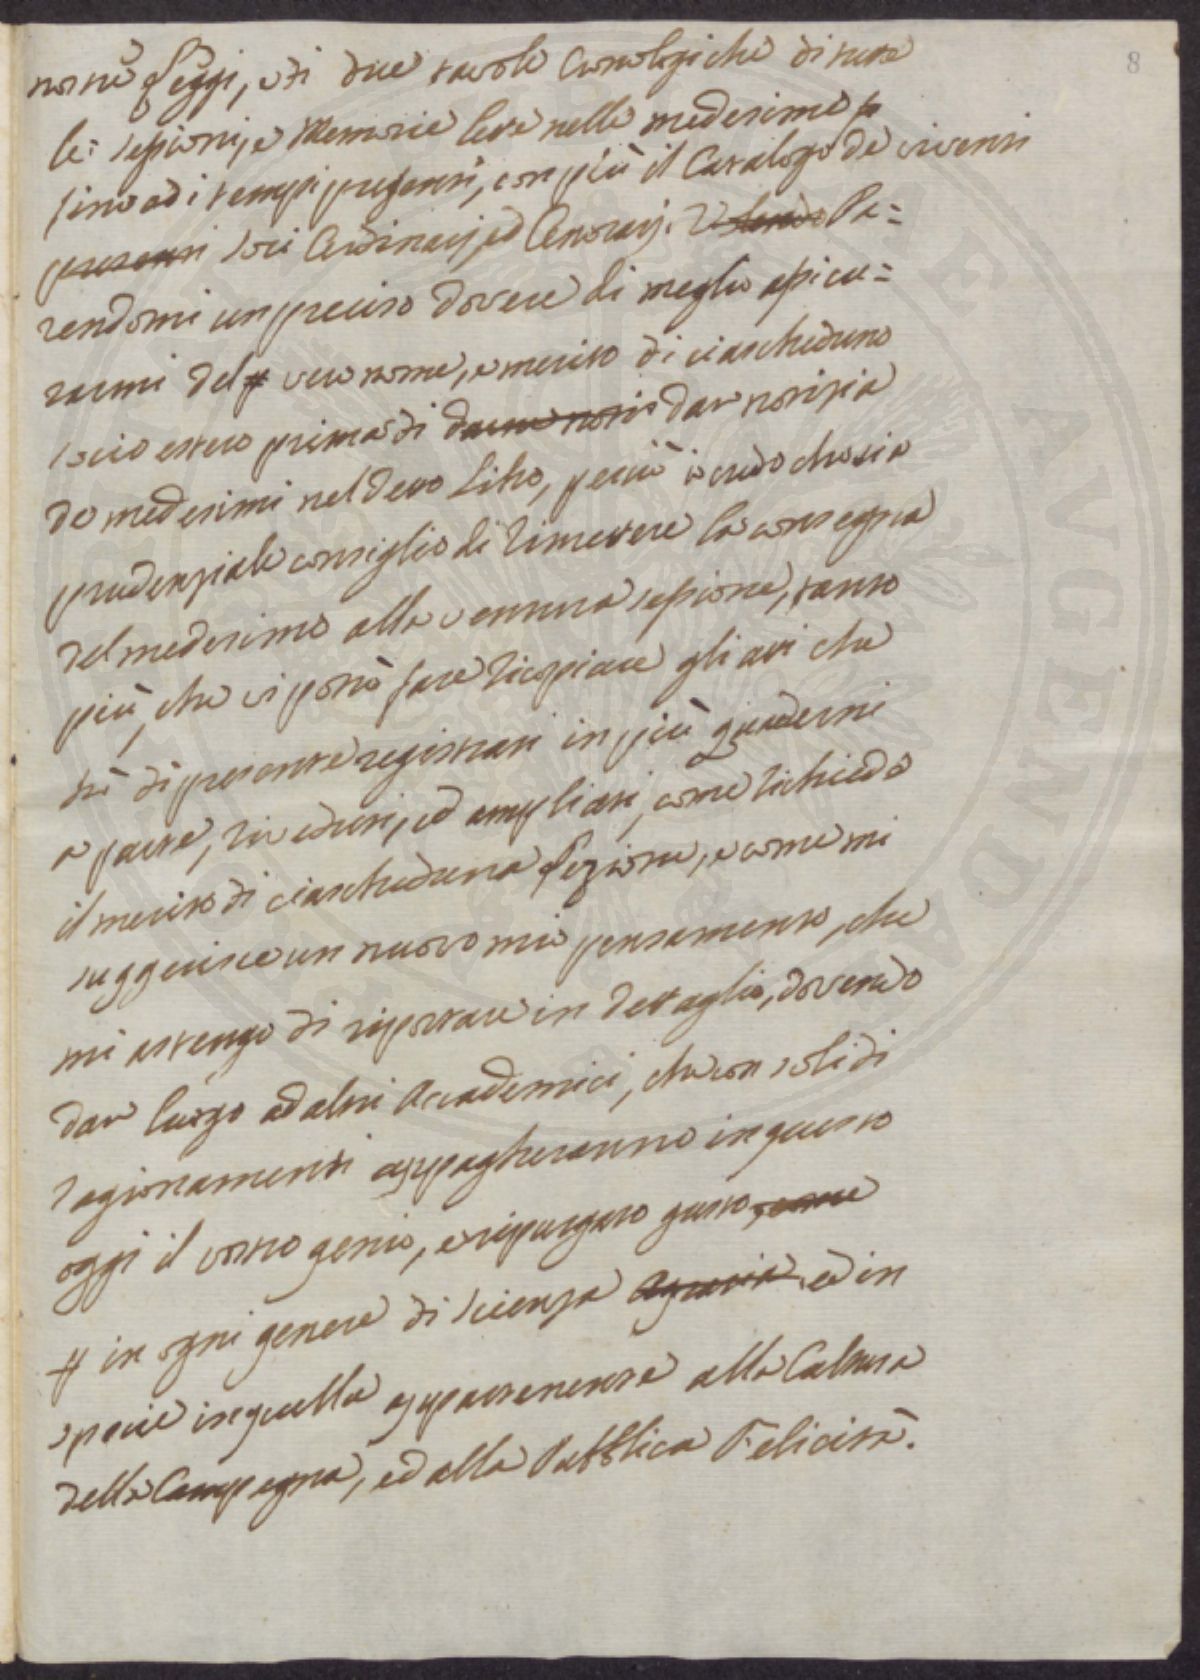 8
nostre Leggi, e di due tavole Cronologiche di tutte
le sessioni, e Memorie lette nelle medesime
sino ad i tempi presenti, con più il Catalogo de viventi
presenti Soci Ordinarj, ed Onorarj. Pa=
rendomi un preciso dovere di meglio assicu=
rarmi del vero nome, e merito di ciascheduno
socio estero prima di darne notiz dar notizia
de medesimi nel detto Libro, perciò io credo che sia
prudenziale consiglio di rimettere la consegna
del medesimo alla ventura sessione, tanto
più, che si potrà fare ricopiare gli atti che
di presente registrati in più quaderni
a parte, riveduti, ed ampliati, come richiede
il merito di ciascheduna Lezione, e come mi
suggerisce un nuovo mio pensamento, che
mi astengo di riportare in dettaglio, dovendo
dar luogo ad altri Accademici, che con solidi
ragionamenti appagheranno in questo
oggi il vostro genio, e ripurgato gusto, come
in ogni genere di scienza Agraria ed in
specie in quella appartenente alla Coltura
della Campagna, ed alla Pubblica Felicità.
PUBLICAE AVGENDAE